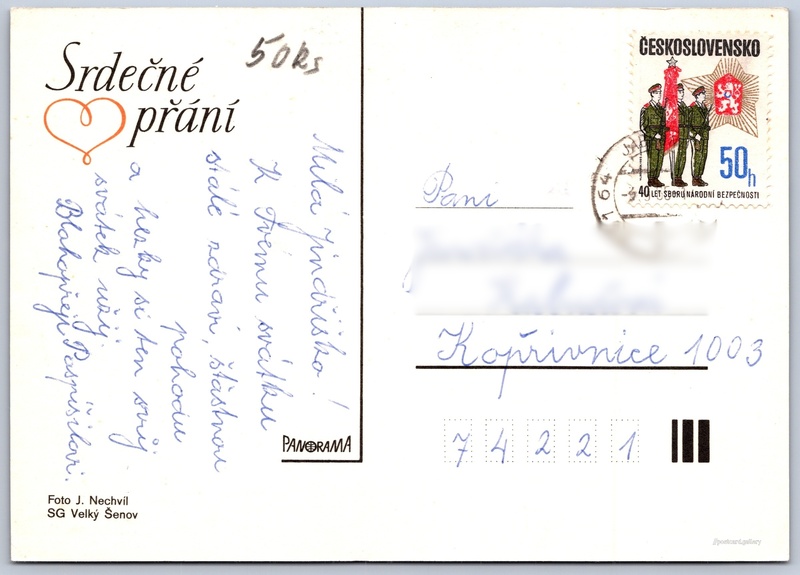 Srdečné
přání
50 ks
Milá Jindřiško!
K Tvému svátku
stálé zdraví, šťastnou
pohodu
a hezky si ten svůj
svátek užij
Blahopřejí Pospíšilovi.
PANORAMA
Foto J. Nechvíl
SG Velký Šenov
ČESKOSLOVENSKO
50h
40 LET SBORU NÁRODNÍ BEZPEČNOSTI
164
Paní
Kopřivnice 1003
74221